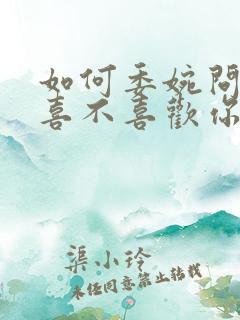 如何委婉問
喜不喜歡你
渠小玲
未任同意禁止转载